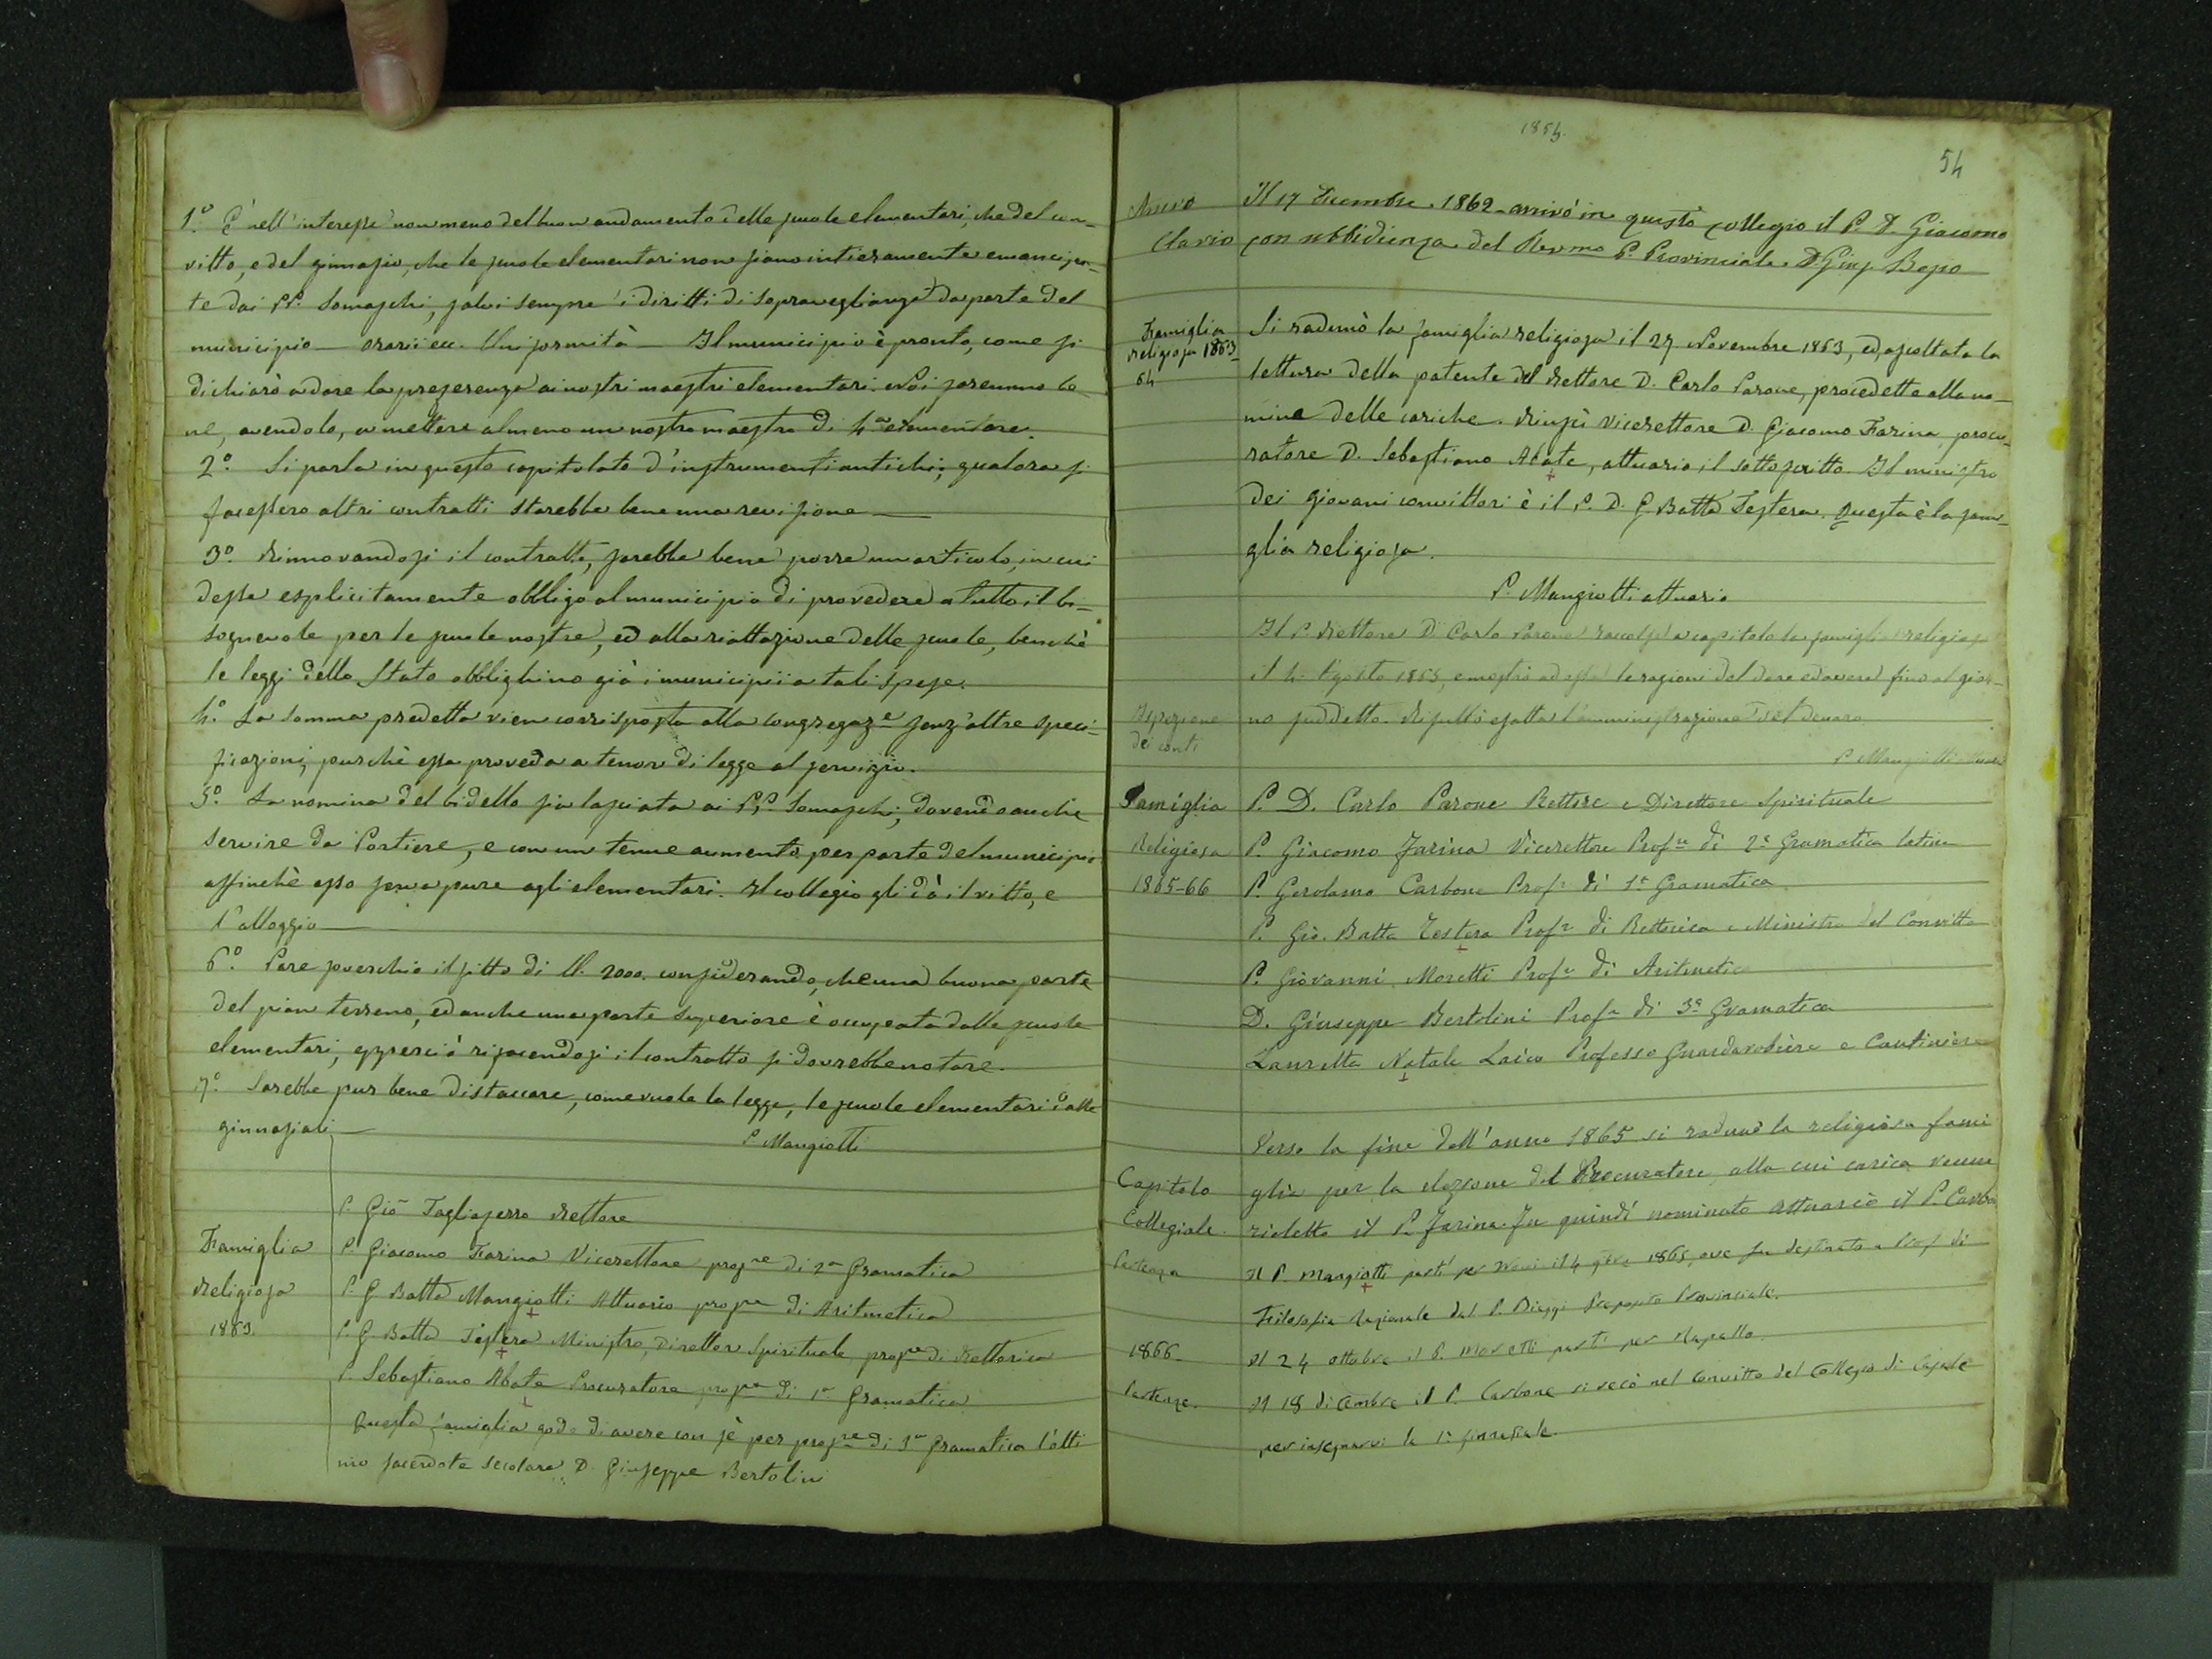 1.º È nell'interesse non meno del buon andamento delle scuole elementari, che del con-
vitto, e del ginnasio, che le scuole elementari non siano intieramente emancipa-
te dai PP. Somaschi, salvi sempre i diritti di sopraveglianza da parte del
municipio — orarii ecc. Uniformità — Il municipio è pronto, come si
dichiarò a dare la preferenza ai nostri maestri elementari. Noi faremmo be-
ne, avendolo, a mettere almeno un nostro maestro di 4.a elementare.
2º. Si parla in questo capitolato d'instrumenti antichi; qualora si
facessero altri contratti starebbe bene una revisione —
3º. Rinnovandosi il contratto, sarebbe bene porre un articolo, in cui
desse esplicitamente obbligo al municipio di provedere a tutto il bi-
sognevole per le scuole nostre, ed alla riattazione delle scuole, benchè
le leggi dello Stato obblighino già i municipii a tali spese.
4.º La somma predetta vien corrisposta alla congregaz.e senz'altre speci-
ficazioni, purchè essa proveda a tenor di legge al servizio.
5º. La nomina del bidello sia lasciata ai PP. Somaschi, dovendo anche
servire da Portiere, e con un tenue aumento per parte del municipio
affinchè esso serva pure agli elementari. Il collegio gli dà il vitto, e
l'alloggio —
6º. Pare soverchio il fitto di ll. 2000. considerando, che una buona parte
del pian terreno, ed anche una parte superiore è occupata dalle scuole
elementari, epperciò rifacendosi il contratto si dovrebbe notare.
7º. Sarebbe pur bene distaccare, come vuole la legge, le scuole elementari dalle
ginnasiali —
P. Mangiotti
P. Gio Tagliaferro Rettore
Famiglia
Religiosa
1863.
P. Giacomo Farina Vicerettore prof.re di 2a Gramatica
P. G Batta Mangiotti Attuario prof.re di Aritmetica
P. G Batta Testera Ministro, Direttor Spirituale prof.re di Rettorica
P. Sebastiano Abate Procuratore prof.re di 1a Gramatica
Questa famiglia gode di avere con sè per prof.re di 3a Gramatica l'otti
mo sacerdote secolare D. Giuseppe Bertolini
54
Arrivo
Il 17 Dicembre 1862 arrivò in questo collegio il P. D. Giacomo
Clavio con ubbidienza del Rev.mo P. Provinciale D. Gius.
Famiglia
religiosa 1863-
64
Si radunò la famiglia religiosa il 27 Novembre 1863, ed ascoltata la
lettura della patente del Rettore D. Carlo Parone, procedette alla no-
mina delle cariche. Riuscì Vicerettore D. Giacomo Farina, procu-
ratore D. Sebastiano Abate, attuario il sottoscritto. Il ministro
dei giovani convittori è il P. D. G. Batta Testera. Questa è la fami-
glia religiosa.
P. Mangiotti attuario
Il P. Rettore D. Carlo Parone raccolse a capitolo la famiglia religiosa
il 4 Agosto 1865, e mostrò ad essa le ragioni del dare ed avere fino al gior-
Ispezione
dei conti
no suddetto. Risultò esatta l'amministrazione del denaro
P. Mangiotti
Famiglia
Religiosa
1865-66
P. D. Carlo Parone Rettore e Direttore Spirituale
P. Giacomo Farina Vicerettore Prof.re di 2a Gramatica latina
P. Gerolamo Carbone Prof.e di 1a Gramatica
P. Gio. Batta Testera Prof.e di Rettorica e Ministro del Convitto
P. Giovanni Moretti Prof.e di Aritmetica
D. Giuseppe Bertolini Prof.e di 3a Gramatica
Lauretta Natale Laico Professo Guardarobiere e Cantiniere
Verso la fine dell'anno 1865 si radunò la religiosa fami
Capitolo
Collegiale
glia per la elezione del Procuratore, alla cui carica venne
rieletto il P. Farina. Fu quindi nominato attuario il P. Carbo
Partenza
Il P. Mangiotti partì per Novi il 4 9bre 1865, ove fu destinato a Prof di
Filosofia Razionale dal P. Biaggi Preposito Provinciale.
1866
Il 24 ottobre il P. Moretti partì per Rapallo.
Partenze.
Il 18 dicembre il P. Carbone si recò nel convitto del Collegio di Casale
per insegnarvi la 1a ginnasiale.